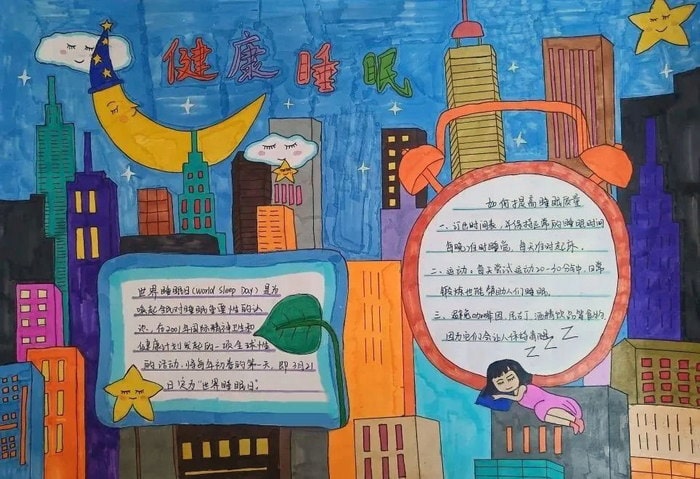 健康睡眠
世界睡眠日(World Sleep Day)是为
唤起全民对睡眠重要性的认
识,在2001年国际精神卫生和
计划发起的一项全球性
的活动,将每年初春的第一天,即3月21
日定为"世界睡眠日"。
如何提高睡眠质量
一、订时间表,并保持正常的睡眠时间
每晚准时睡觉,每天准时起床。
二、运动:每天尝试运动20-30分钟,日常
锻炼也能帮助人们睡眠。
三、避免咖啡因,尼古丁,酒精饮品
因为它们会让人
ZZZ